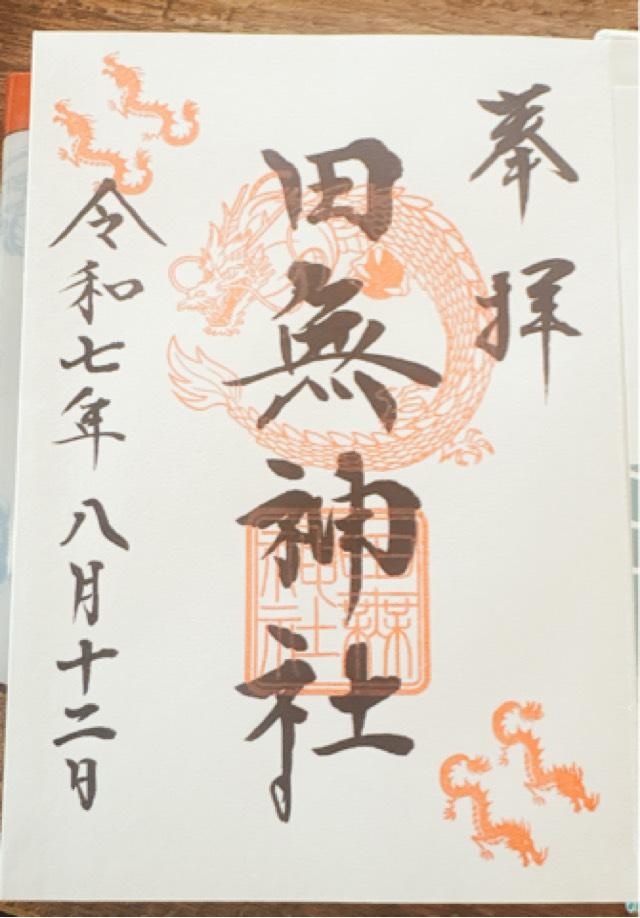 奉拝
田無神社
田無神社
令和七年八月十二日